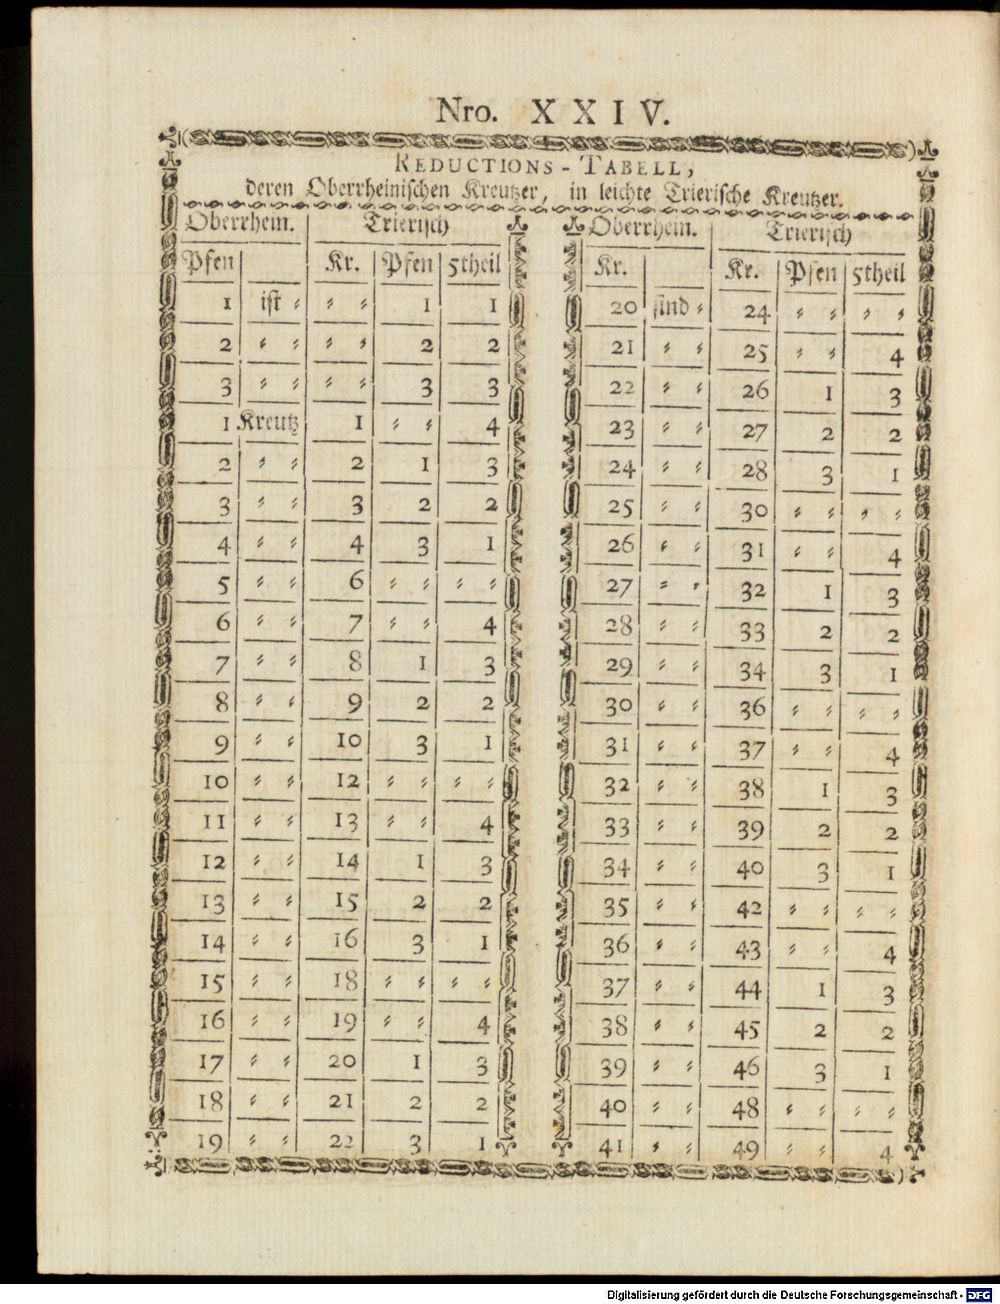 Nro. XXIV.
REDUCTIONS-TABELL,
deren Oberrheinischen Kreutzer, in leichte Trierische Kreutzer.
Oberrhein. Trierisch
Pfen Kr. Pfen 5theil
1 ist ⸗ ⸗ ⸗ 1 1
2 ⸗ ⸗ ⸗ ⸗ 2 2
3 ⸗ ⸗ ⸗ ⸗ 3 3
1 Kreutz 1 ⸗ ⸗ 4
2 ⸗ ⸗ 2 1 3
3 ⸗ ⸗ 3 2 2
4 ⸗ ⸗ 4 3 1
5 ⸗ ⸗ 6 ⸗ ⸗ ⸗ ⸗
6 ⸗ ⸗ 7 ⸗ ⸗ 4
7 ⸗ ⸗ 8 1 3
8 ⸗ ⸗ 9 2 2
9 ⸗ ⸗ 10 3 1
10 ⸗ ⸗ 12 ⸗ ⸗ ⸗ ⸗
11 ⸗ ⸗ 13 ⸗ ⸗ 4
12 ⸗ ⸗ 14 1 3
13 ⸗ ⸗ 15 2 2
14 ⸗ ⸗ 16 3 1
15 ⸗ ⸗ 18 ⸗ ⸗ ⸗ ⸗
16 ⸗ ⸗ 19 ⸗ ⸗ 4
17 ⸗ ⸗ 20 1 3
18 ⸗ ⸗ 21 2 2
19 ⸗ ⸗ 22 3 1
Oberrhein. Trierisch
Kr. Kr. Pfen 5theil
20 sind ⸗ 24 ⸗ ⸗ ⸗ ⸗
21 ⸗ ⸗ 25 ⸗ ⸗ 4
22 ⸗ ⸗ 26 1 3
23 ⸗ ⸗ 27 2 2
24 ⸗ ⸗ 28 3 1
25 ⸗ ⸗ 30 ⸗ ⸗ ⸗ ⸗
26 ⸗ ⸗ 31 ⸗ ⸗ 4
27 ⸗ ⸗ 32 1 3
28 ⸗ ⸗ 33 2 2
29 ⸗ ⸗ 34 3 1
30 ⸗ ⸗ 36 ⸗ ⸗ ⸗ ⸗
31 ⸗ ⸗ 37 ⸗ ⸗ 4
32 ⸗ ⸗ 38 1 3
33 ⸗ ⸗ 39 2 2
34 ⸗ ⸗ 40 3 1
35 ⸗ ⸗ 42 ⸗ ⸗ ⸗ ⸗
36 ⸗ ⸗ 43 ⸗ ⸗ 4
37 ⸗ ⸗ 44 1 3
38 ⸗ ⸗ 45 2 2
39 ⸗ ⸗ 46 3 1
40 ⸗ ⸗ 48 ⸗ ⸗ ⸗ ⸗
41 ⸗ ⸗ 49 ⸗ ⸗ 4
Digitalisierung gefördert durch die Deutsche Forschungsgemeinschaft - DFG